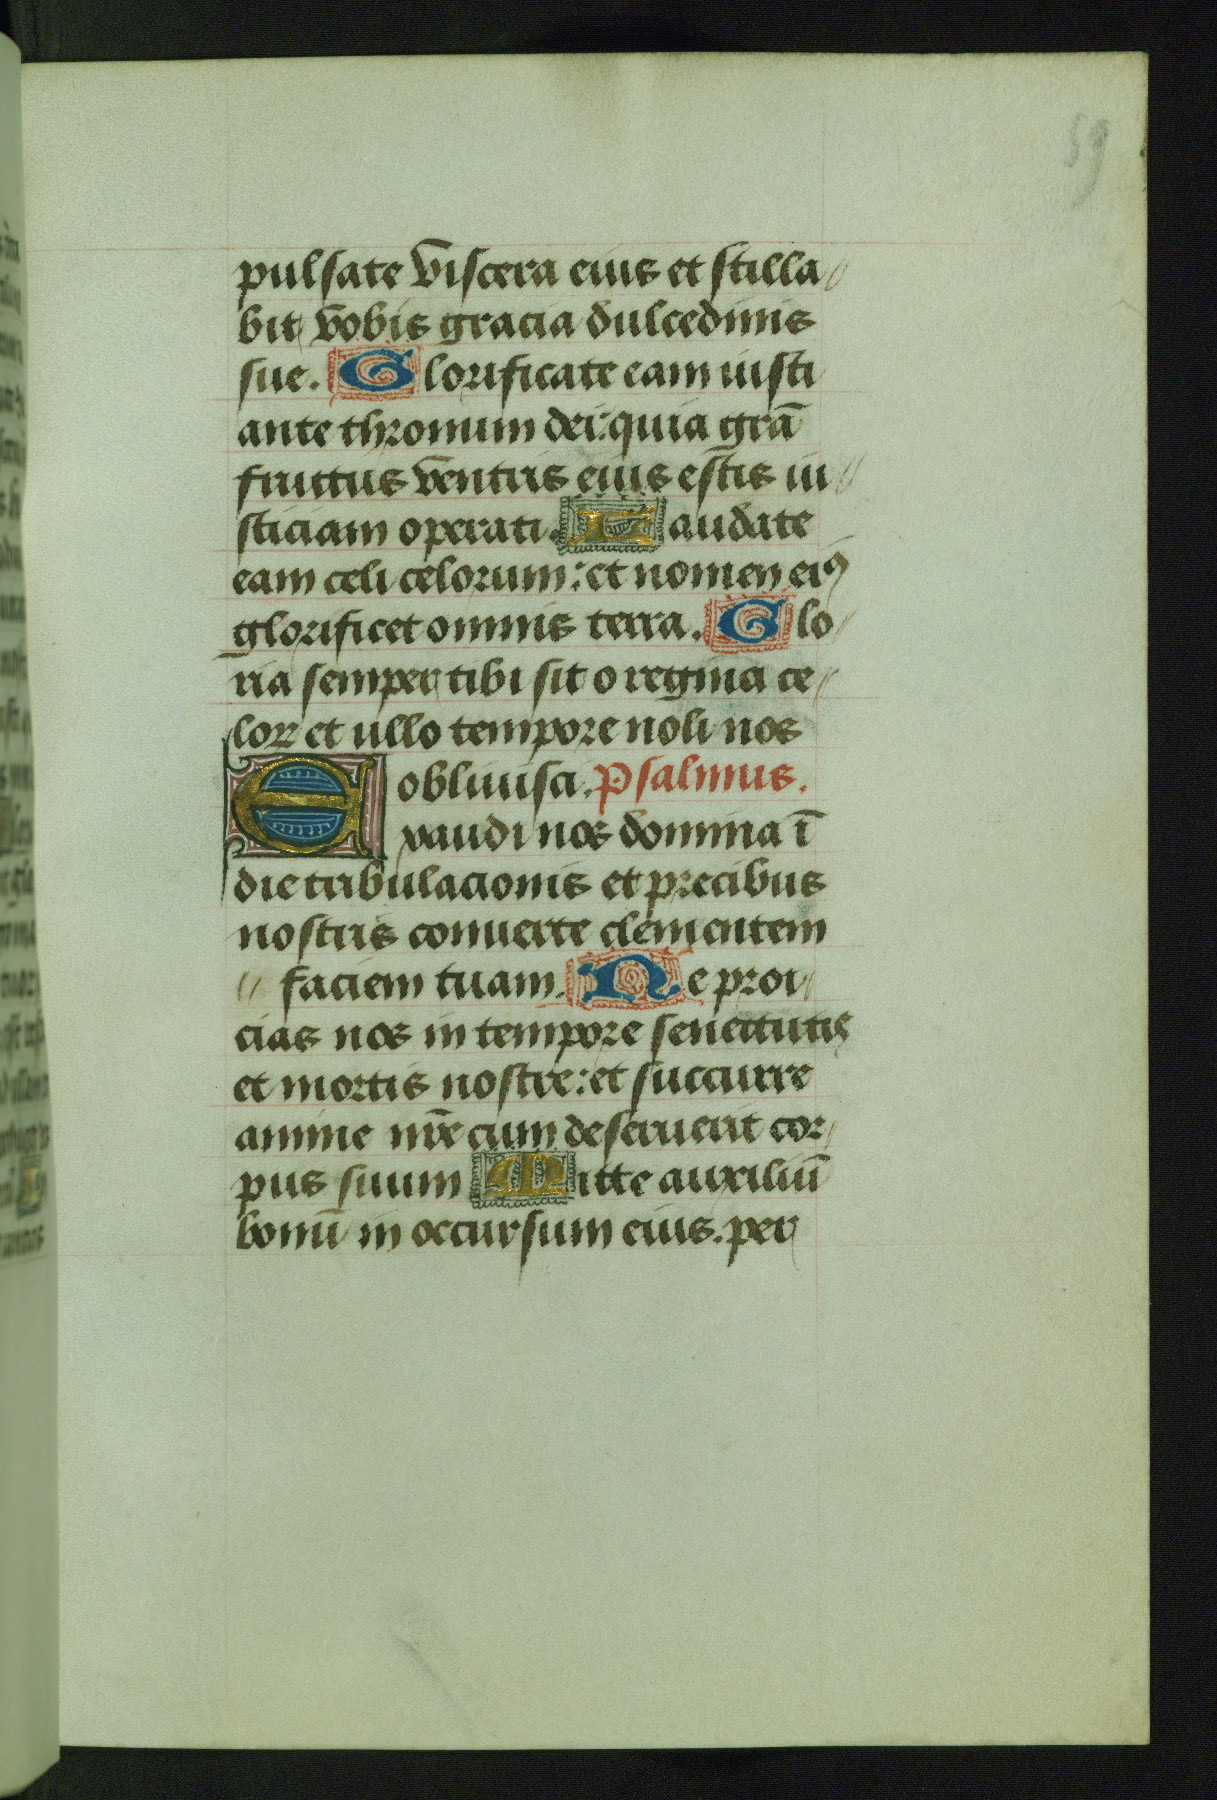 59
pulsate viscera eius et stilla
bit vobis gracia dulcedinis
sue. Glorificate eam iusti
ante thronum dei: quia grā
fructus ventris eius estis iu
sticiam operati. Laudate
eam celi celorum: et nomen eiꝰ
glorificet omnis terra. Glo
ria semper tibi sit o regina ce
loꝝ et ullo tempore noli nos
oblivisci. Psalmus.
Exaudi nos domina ī
die tribulacionis et precibus
nostris converte clementem
faciem tuam. Ne proi
cias nos in tempore senectutis
et mortis nostre: et succurre
anime nr̄e cum deseruerit cor
pus suum Mitte auxiliū
bonū in occursum eius. per